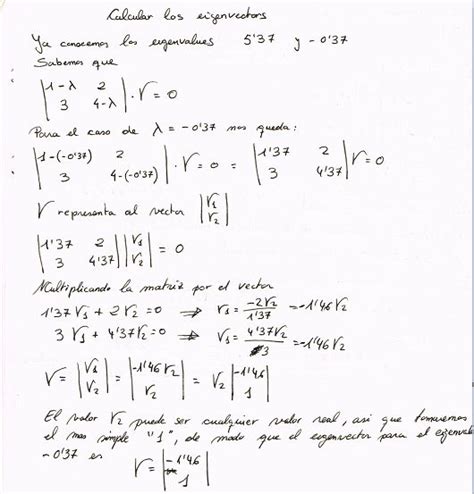 Calcular los eigenvectors
Ya conocemos los eigenvalues 5'37 y -0'37
Sabemos que
|1-λ 2|
|3 4-λ| · V = 0
Para el caso de λ = -0'37 nos queda:
|1-(-0'37) 2| · V = 0 = |1'37 2| V = 0
|3 4-(-0'37)| |3 4'37|
V representa al vector |V1|
|V2|
|1'37 2| |V1| = 0
|3 4'37| |V2|
Multiplicando la matriz por el vector
1'37 V1 + 2 V2 = 0 ⇒ V1 = -2V2/1'37 = -1'46 V2
3 V1 + 4'37 V2 = 0 ⇒ V1 = 4'37V2/3 = -1'46 V2
V = |V1| = |-1'46 V2| = V2 |-1'46|
|V2| |V2| |1|
El valor V2 puede ser cualquier valor real, asi que tomaremos
el mas simple "1", de modo que el eigenvector para el eigenval
-0'37 es V = |-1'46|
|1|